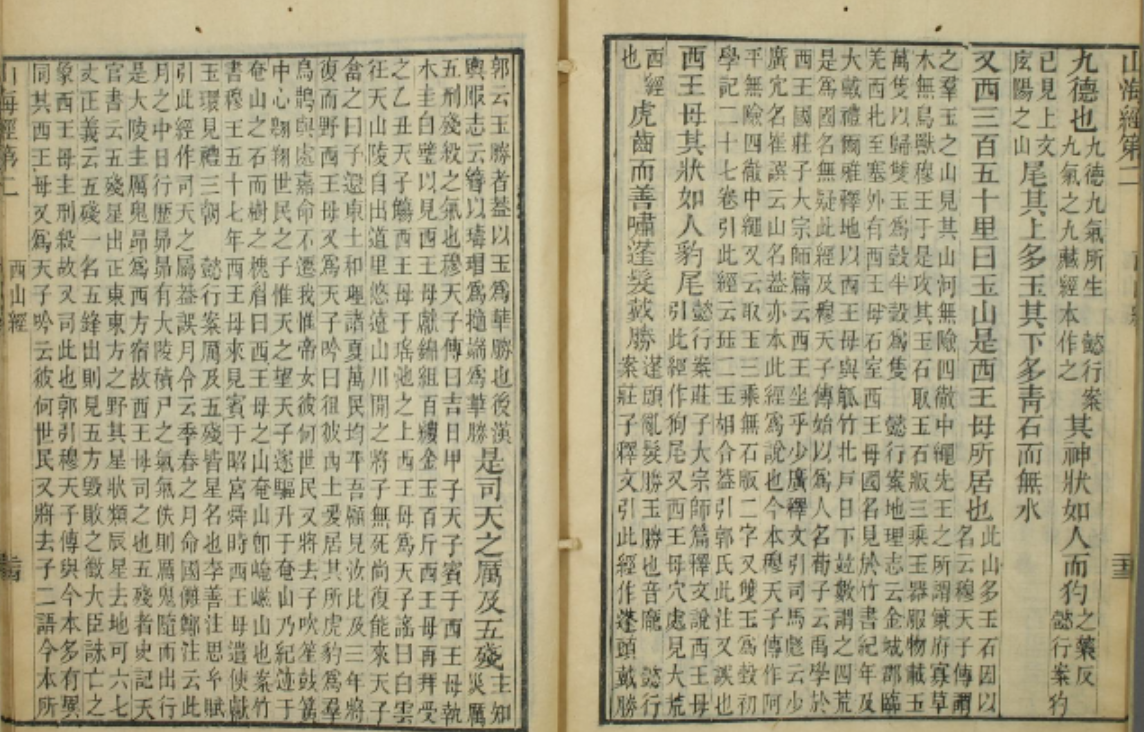 山海經第二
九德也
九德九氣所生 懿行案
九氣之九藏經本作之
其神狀如人而犳
之藥反
懿行案犳
已見上文
底陽之山
尾其上多玉其下多青石而無水
又西三百五十里曰玉山是西王母所居也
此山多玉石因以
名云穆天子傳謂
之羣玉之山見其山河無險四徹中繩先王之所謂策府寡草
木無鳥獸穆王于是攻其玉石取玉石版三乘玉器服物載玉
萬隻以歸雙玉爲瑴半瑴爲隻 懿行案地理志云金城郡臨
羌西北至塞外有西王母石室西王母國名見於竹書紀年及
大戴禮爾雅釋地以西王母與觚竹北戶日下竝數謂之四荒
是爲國名無疑此經及穆天子傳始以爲人名荀子云禹學於
西王國莊子大宗師篇云西王坐乎少廣釋文引司馬彪云少
廣穴名崔譔云山名蓋亦本此經爲說也今本穆天子傳作阿
平無險四徹中繩又云取玉三乘無石版二字又雙玉爲瑴初
學記二十七卷引此經云珏二玉相合蓋引郭氏此注又誤也
西王母其狀如人豹尾
懿行案莊子大宗師篇釋文說西王母
引此經作狗尾又西王母穴處見大荒
西經
也
虎齒而善嘯蓬髮戴勝
蓬頭亂髮勝玉勝也音龐 懿行
案莊子釋文引此經作蓬頭戴勝
郭云玉勝者蓋以玉爲華勝也後漢
輿服志云簪以瑇瑁爲擿端爲華勝
是司天之厲及五殘
主知災厲
五刑殘殺之氣也穆天子傳曰吉日甲子天子賓于西王母執
木圭白璧以見西王母獻錦組百縷金玉百斤西王母再拜受
之乙丑天子觴西王母于瑤池之上西王母爲天子謠曰白雲
在天山陵自出道里悠遠山川間之將子無死尚復能來天子
畣之曰予還東土和理諸夏萬民均平吾顧見汝比及三年將
復而野西王母又爲天子吟曰徂彼西土爰居其所虎豹爲羣
鳥鵲與處嘉命不遷我惟帝女彼何世民又將去子吹笙鼓簧
中心翱翔世民之子惟天之望天子遂驅升于奄山乃紀迹于
奄山之石而樹之槐眉曰西王母之山奄山卽崦嵫山也案竹
書穆王五十七年西王母來見賓于昭宮舜時西王母遣使獻
玉環見禮三朝 懿行案厲及五殘皆星名也李善注思玄賦
引此經作司天之屬蓋誤月令云季春之月命國儺鄭注云此
月之中日行歷昴昴有大陵積尸之氣氣佚則厲鬼隨而出行
是大陵主厲鬼昴爲西方宿故西王母司之也五殘者史記天
官書云五殘星出正東東方之野其星狀類辰星去地可六七
丈正義云五殘一名五鋒出則見五方毀敗之徵大臣誅亡之
象西王母主刑殺故又司此也郭引穆天子傳與今本多有異
同其西王母又爲天子吟云彼何世民又將去子二語今本所
山海經第二
西山經